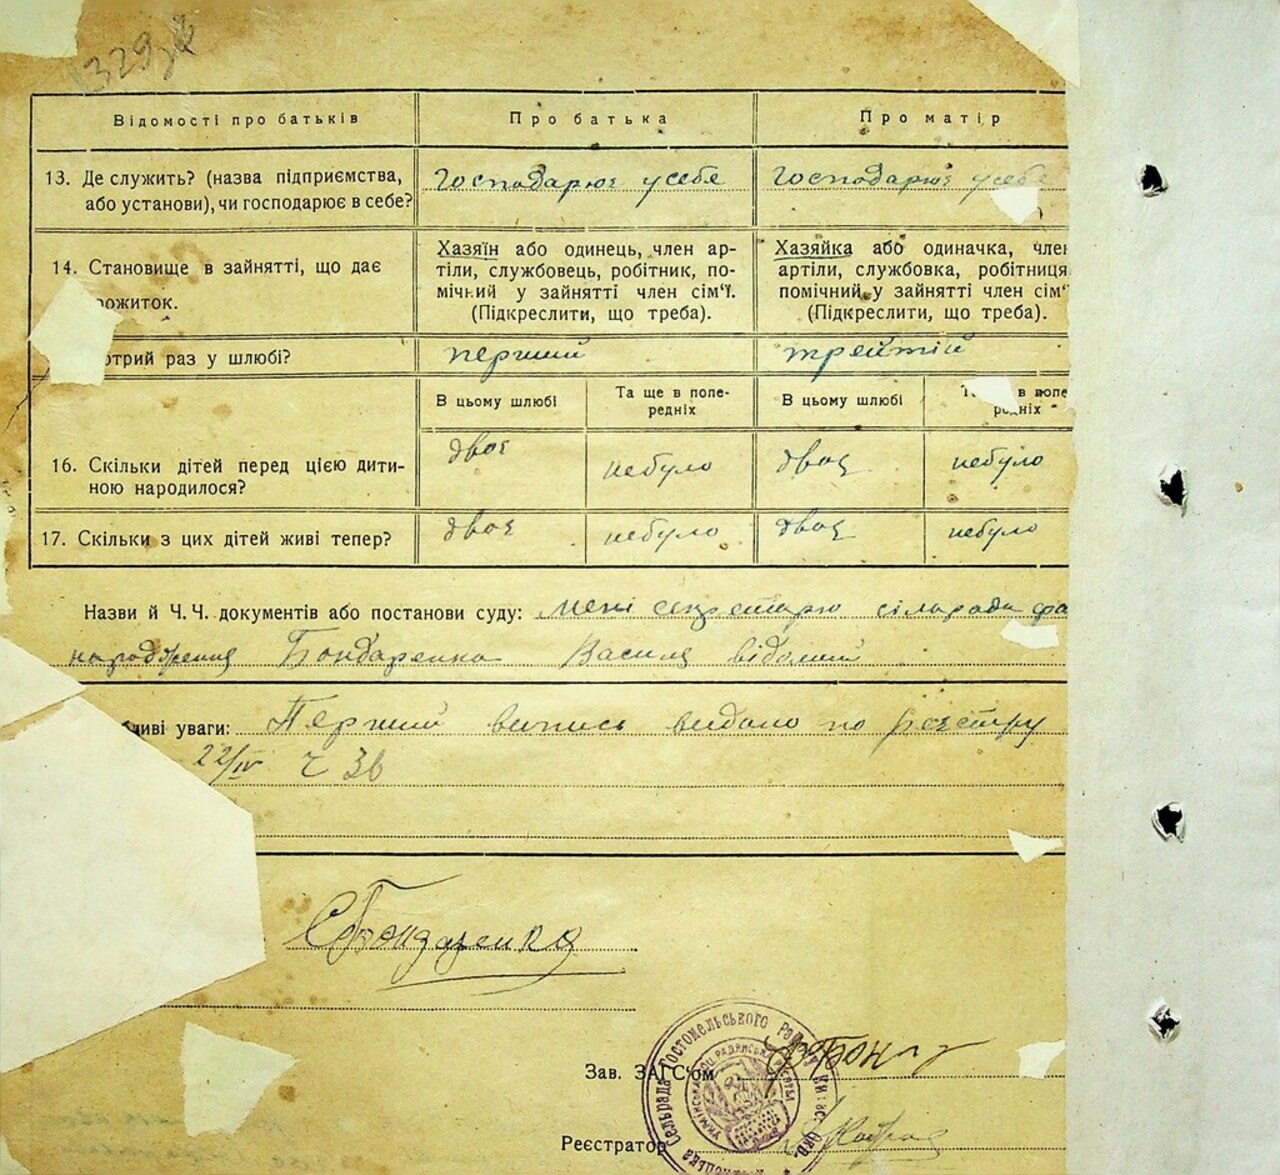 329
Відомості про батьків
Про батька
Про матір
13. Де служить? (назва підприємства,
або установи), чи господарює в себе?
Господарює у себе
Господарює у себе
14. Становище в зайнятті, що дає
рожиток.
Хазяїн або одинець, член ар-
тіли, службовець, робітник, по-
мічний у зайнятті член сім'ї.
(Підкреслити, що треба).
Хазяйка або одиначка, член
артіли, службовка, робітниця
помічний у зайнятті член сім'
(Підкреслити, що треба).
отрий раз у шлюбі?
перший
третій
В цьому шлюбі
Та ще в попе-
редніх
В цьому шлюбі
в попе
редніх
16. Скільки дітей перед цією дити-
ною народилося?
двоє
небуло
двоє
небуло
17. Скільки з цих дітей живі тепер?
двоє
небуло
двоє
небуло
Назви й Ч.Ч. документів або постанови суду: Мені секретарю сільради фа
народження Бондаренка Василя відомий
ливі уваги: Перший випись видано по реєстру
22/IV Ч 36
Бондаренко
Зав. ЗАГС'ом
Реєстратор
Сельрада Гостомельського Району Київс. Окр.